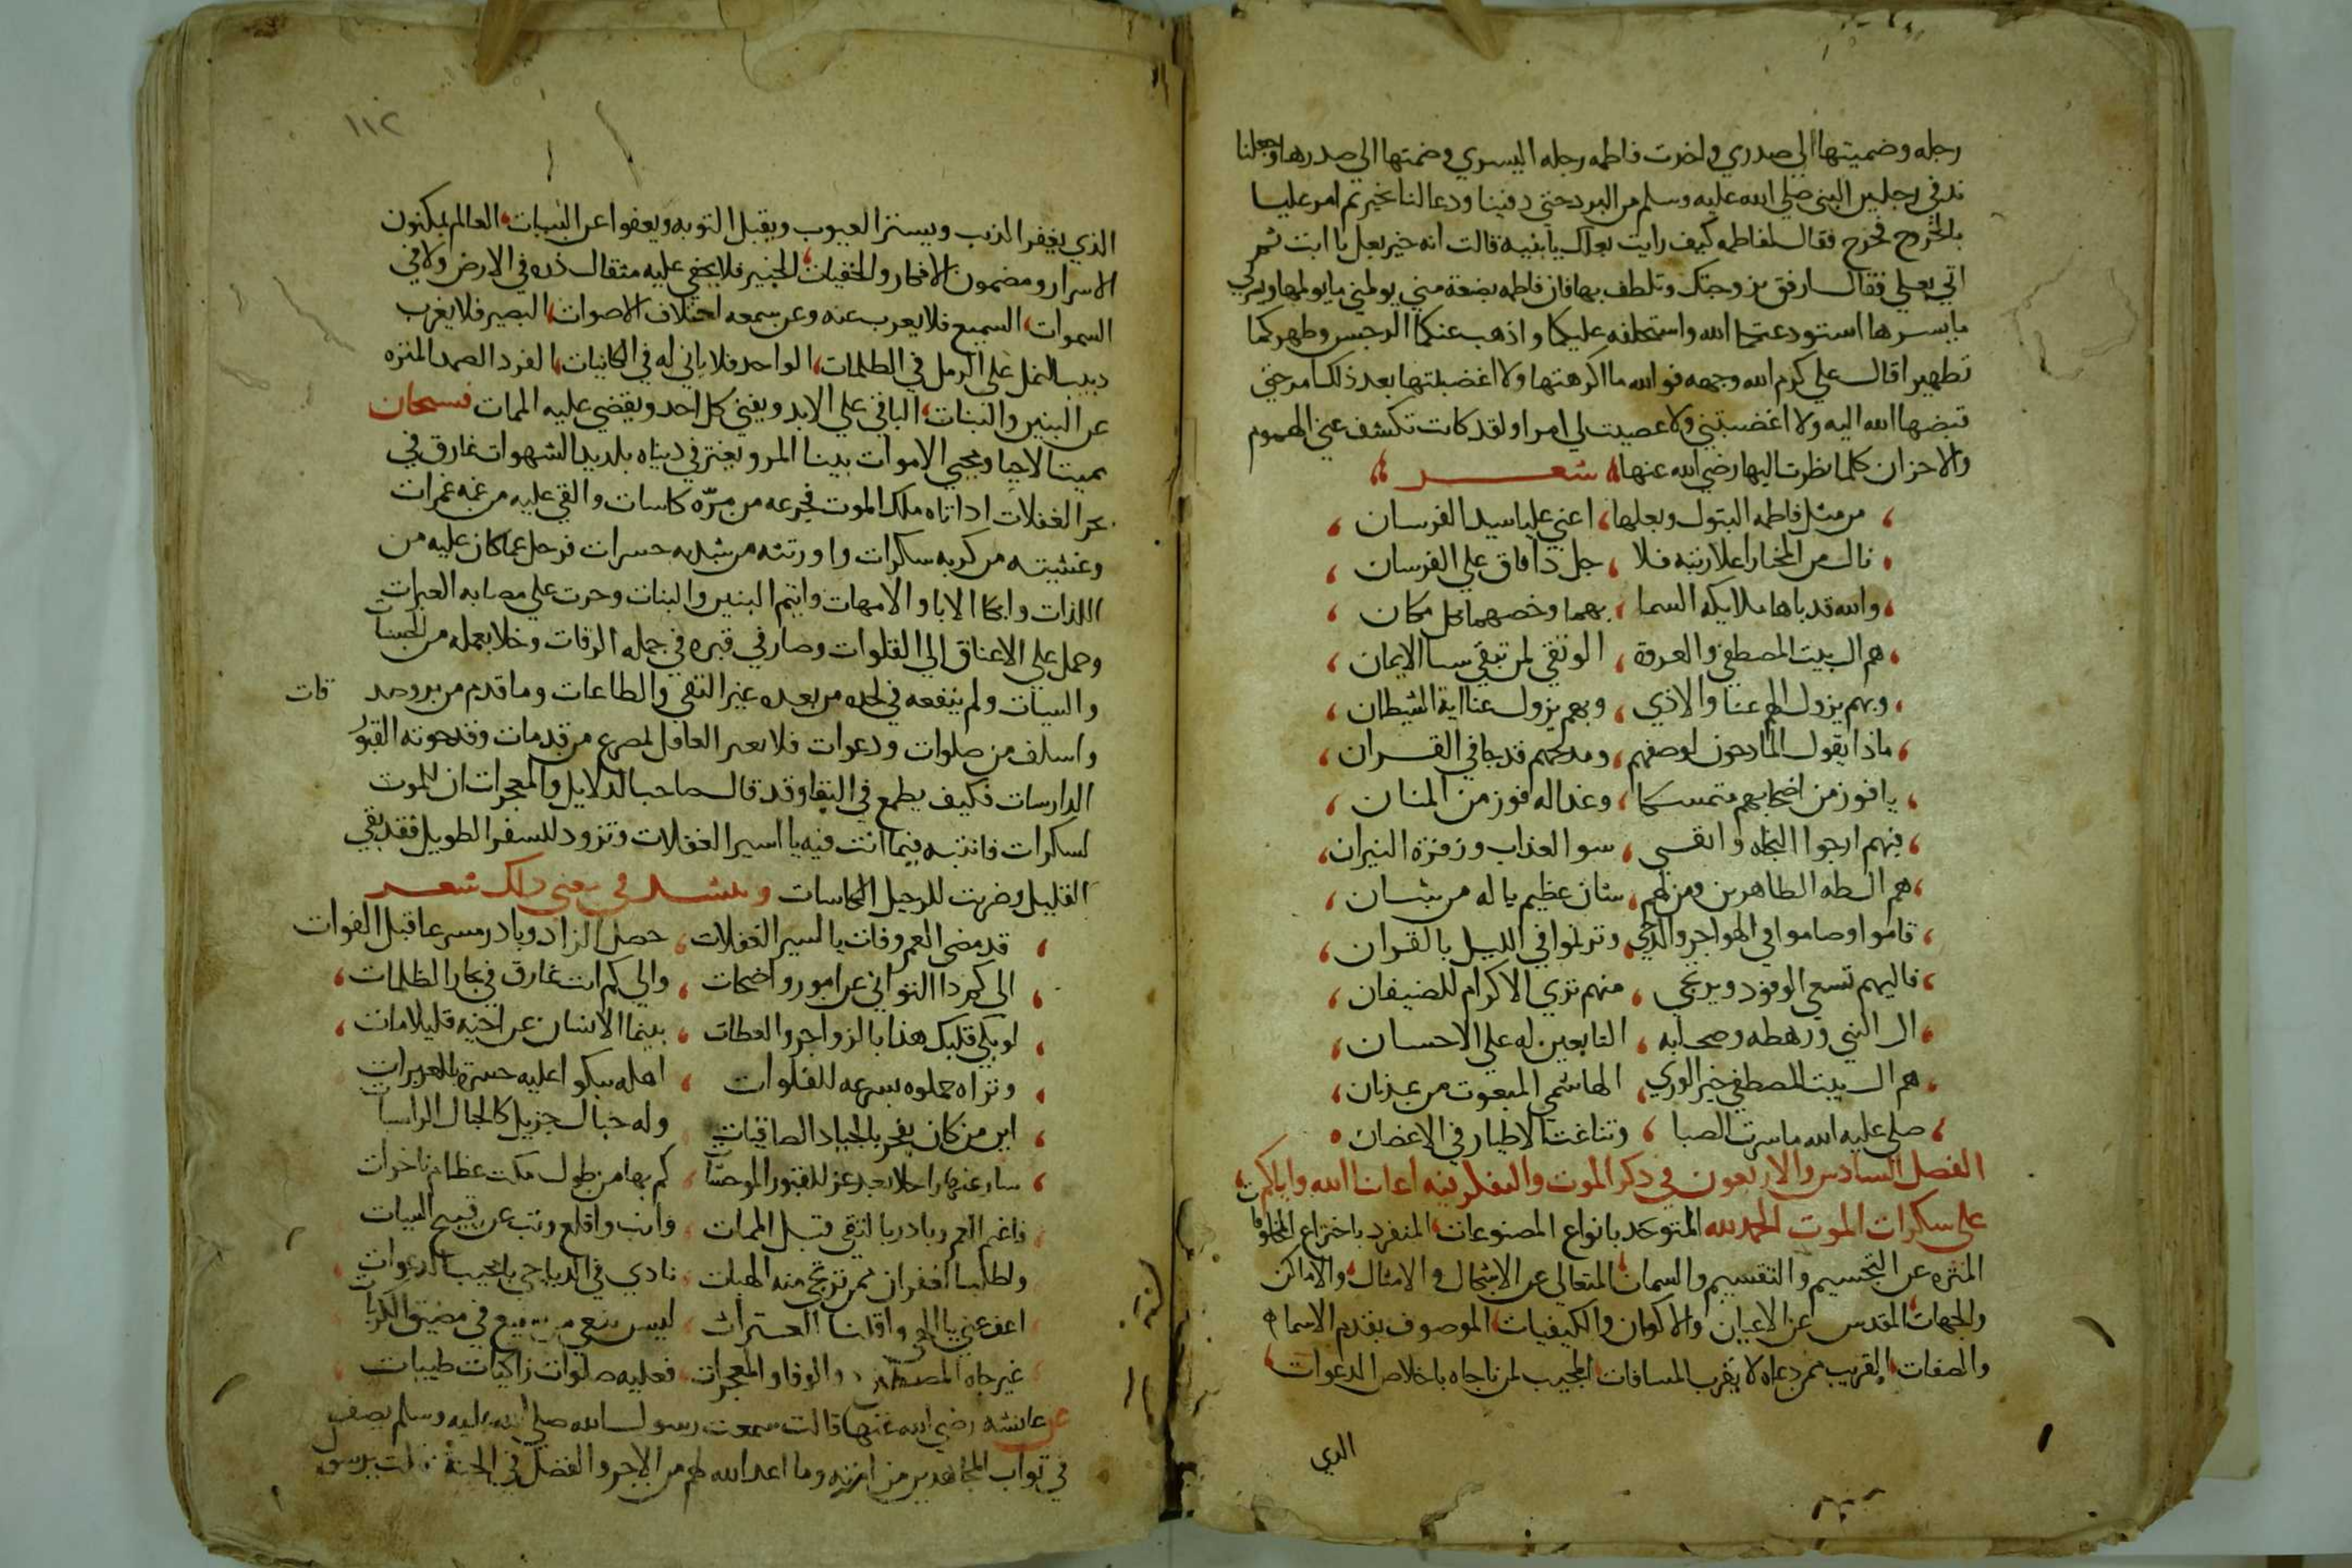 رجله وضميتها الي صدري واخذت فاطمه رجله اليسري وضمتها الي صدرها وجعلنا
ندفي رجلين النبي صلي الله عليه وسلم من البرد حتي دفينا ودعا لنا بخير ثم امر عليا
بالخروج فخرج فقال لفاطمه كيف رايت بعلك يا بنيه قالت انه خير بعل يا ابت ثم
اتي بعلي فقال ارفق بزوجتك وتلطف بها فان فاطمه بضعة مني يولمني ما يولمها ويسرني
ما يسرها استودعتكما الله واستخلفه عليكما واذهب عنكما الرجس وطهركما
تطهيرا قال علي كرم الله وجهه فوالله ما اكرهتها ولا اغضبتها بعد ذلك من حتي
قبضها الله اليه ولا اغضبتني ولا عصيت لي امرا ولقد كانت تكشف عني الهموم
والاحزان كلما نظرت اليها رضي الله عنها شعر
من مثل فاطمه البتول وبعلها اعني عليا سيد الفرسان
نال من المختار اعلا رتبه فلا جل ذا فاق علي الفرسان
والله قد باها ملايكه السما بهما وخصهما بكل مكان
هم ال بيت المصطفي والعروة الوثقي لمن تبقي سنا الايمان
وبهم يزول الهم عنا والاذي وبهم يزول عنا اية الشيطان
ماذا يقول المادحون لوصفهم ومدحهم قد جا في القران
يا فوز من اضحا بهم متمسكا وغدا له فوز من المنان
فبهم ارجوا النجاه واتقي سوا العذاب وزفرة النيران
هم ال طه الطاهرين ومن لهم شان عظيم يا له من شان
قاموا وصاموا في الهواجر والدجي وترنموا في الليل بالقران
فاليهم تسعي الوفود ويرتجي منهم تري الاكرام للضيفان
ال النبي ورهطه وصحابه التابعين له علي الاحسان
هم ال بيت المصطفي خير الوري الهاشمي المبعوث من عدنان
صلي عليه الله ما سرت الصبا وتناغت الاطيار في الاغصان
الفصل السادس والاربعون في ذكر الموت والتفكر فيه اعاننا الله واياكم
علي سكرات الموت الحمد لله المتوحد بانواع المصنوعات المنفرد باختراع المخلوقات
المنزه عن التجسيم والتقسيم والسمات المتعالي عن الاشكال والامثال والاماكن
والجهات المقدس عن الاعيان والاكوان والكيفيات الموصوف بقدم الاسما
والصفات القريب ممن دعاه لا بقرب المسافات المجيب لمن ناجاه باخلاص الدعوات
الذي
١١٢
الذي يغفر الذنب ويستر العيوب ويقبل التوبه ويعفوا عن السيات العالم بمكنون
الاسرار ومضمون الافكار والخفيات الخبير فلا يخفي عليه مثقال ذره في الارض ولا في
السموات السميع فلا يعزب عنه وعن سمعه اختلاف الاصوات البصير فلا يغرب
دبيب النمل علي الرمل في الظلمات الواحد فلا ثاني له في الكاينات الفرد الصمد المنزه
عن البنين والبنات الباقي علي الابد ويفني كل احد ويقضي عليه الممات فسبحان
مميت الاحيا ومحيي الاموات بينا المرو يغتر في دنياه بلذيذ الشهوات غارق في
بحر الغفلات اذ اتاه ملك الموت فجرعه من مره كاسات والقي عليه من غمه غمرات
وغشيته من كربه سكرات واورثته من شدايده حسرات فرحل عما كان عليه من
اللذات وابكا الابا والامهات وايتم البنين والبنات وجرت علي مصابه العبرات
وحمل علي الاعناق الي الفلوات وصار في قبره في جمله الرفات وخلا بعمله من الحسنات
والسيات ولم ينفعه في لحده من بعده غير التقي والطاعات وما قدم من بر وصد قات
واسلف من صلوات ودعوات فلا يعتبر العاقل لمصرع من قد مات وقد حوته القبور
الدارسات فكيف يطمع في البقا وقد قال صاحب الدلايل والمعجزات ان للموت
لسكرات فانتبه فيما انت فيه يا اسير الغفلات وتزود للسفر الطويل فقد بقي
القليل وضربت للرحيل الكاسات وينشد في معني ذلك شعر
قد مضي العمر وفات يا اسير الغفلات حصل الزاد وبادر مسرعا قبل الفوات
الي كم ذا التواني عن امور واضحات والي كم انت غارق في بحار الظلمات
لو بكي قلبك هذا بالزواجر والعظات بينما الانسان عن اخيه قيل مات
وتراه حملوه سرعه للفلوات اهله يبكوا عليه حسرة بالعبرات
اين من كان يفخر بالجياد الصافنات وله مال جزيل كالجبال الراسيات
سار عنها راحلا بعد عز للقبور الموحشات كم بها من طول مكث عظام ناخرات
فاغنم العمر وبادر بالتقي قبل الممات وانب واقلع وتب عن قبيح السيات
واطلب الغفران ممن ترتجي منه الهبات نادي في الدياجي يا مجيب الدعوات
اعف عني يا الهي واقلنا العثرات ليس شفيع في مضيق الكربات
غير جاه المصطفي والوفا والمعجزات فعليه صلوات زاكيات طيبات
عن عائشه رضي الله عنها قالت سمعت رسول الله صلي الله عليه وسلم يصف
في ثواب المجاهدين من امته وما اعد الله لهم من الاجر والفضل في الجنة